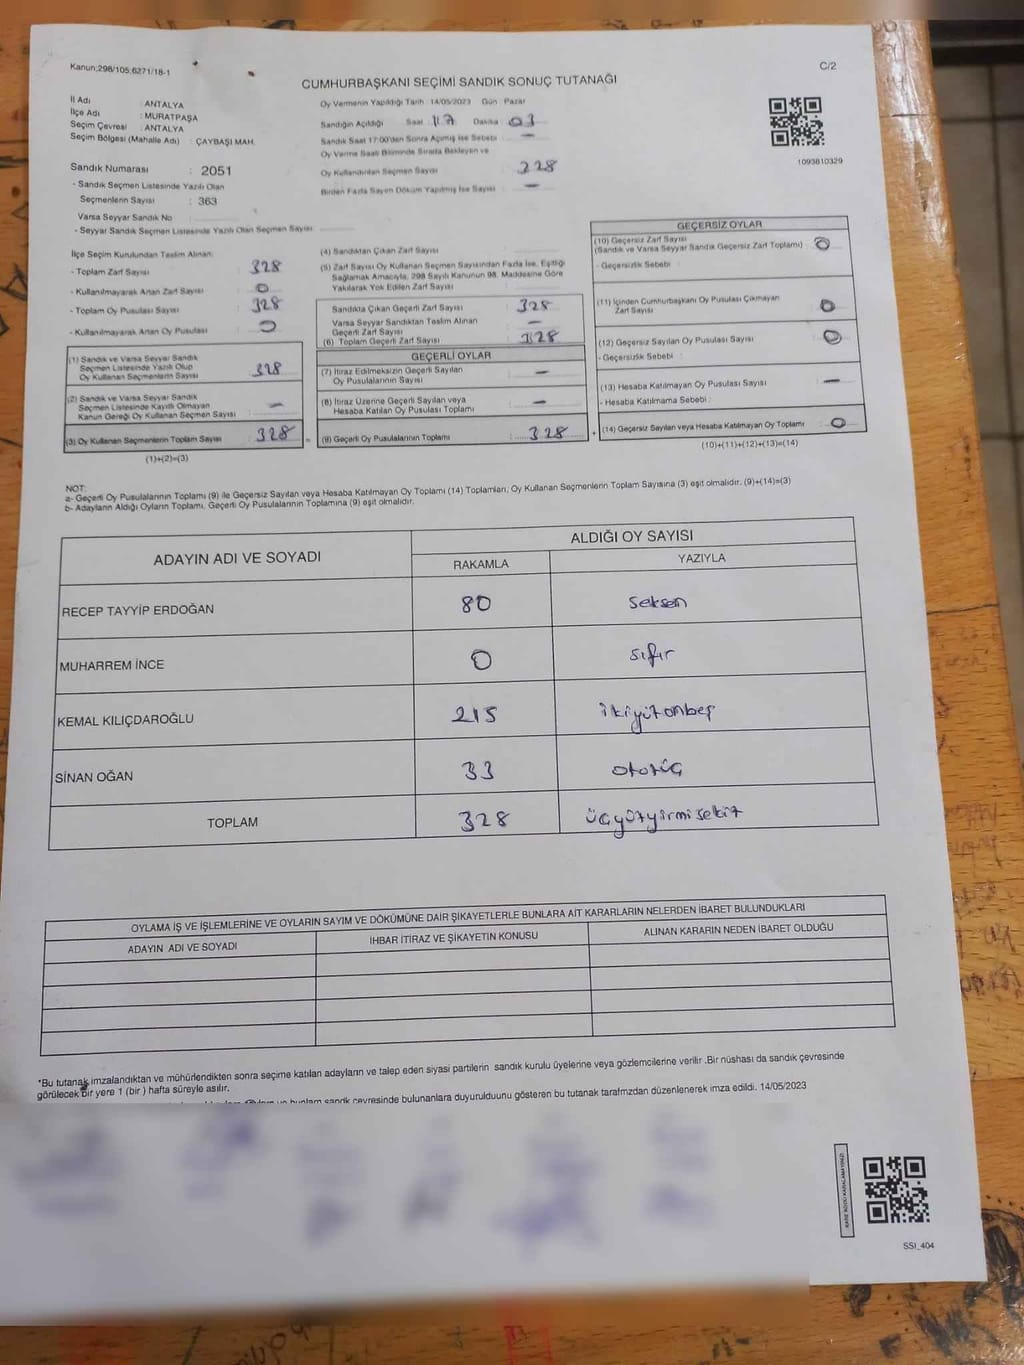 Kanun;298/105;6271/18-1
C/2
CUMHURBAŞKANI SEÇİMİ SANDIK SONUÇ TUTANAĞI
İl Adı : ANTALYA
İlçe Adı : MURATPAŞA
Seçim Çevresi : ANTALYA
Seçim Bölgesi (Mahalle Adı) : ÇAYBAŞI MAH.
Sandık Numarası : 2051
- Sandık Seçmen Listesinde Yazılı Olan
Seçmenlerin Sayısı : 363
Varsa Seyyar Sandık No
- Seyyar Sandık Seçmen Listesinde Yazılı Olan Seçmen Sayısı:
Oy Vermenin Yapıldığı Tarih :14/05/2023 Gün : Pazar
Sandığın Açıldığı Saat 17 Dakika 03
Sandık Saat 17:00'den Sonra Açılmış İse Sebebi : —
Oy Verme Saati Bitiminde Sırada Bekleyen ve
Oy Kullandırılan Seçmen Sayısı : 328
Birden Fazla Sayım Döküm Yapılmış İse Sayısı : —
1093810329
İlçe Seçim Kurulundan Teslim Alınan:
- Toplam Zarf Sayısı : 328
- Kullanılmayarak Artan Zarf Sayısı : 0
- Toplam Oy Pusulası Sayısı : 328
- Kullanılmayarak Artan Oy Pusulası : 0
(1) Sandık ve Varsa Seyyar Sandık
Seçmen Listesinde Yazılı Olup
Oy Kullanan Seçmenlerin Sayısı : 328
(2) Sandık ve Varsa Seyyar Sandık
Seçmen Listesinde Kayıtlı Olmayan
Kanun Gereği Oy Kullanan Seçmen Sayısı : —
(3) Oy Kullanan Seçmenlerin Toplam Sayısı : 328
(1)+(2)=(3)
(4) Sandıktan Çıkan Zarf Sayısı :
(5) Zarf Sayısı Oy Kullanan Seçmen Sayısından Fazla İse, Eşitliği
Sağlamak Amacıyla, 298 Sayılı Kanunun 98. Maddesine Göre
Yakılarak Yok Edilen Zarf Sayısı :
Sandıkta Çıkan Geçerli Zarf Sayısı : 328
Varsa Seyyar Sandıktan Teslim Alınan
Geçerli Zarf Sayısı : —
(6) Toplam Geçerli Zarf Sayısı : 328
GEÇERLİ OYLAR
(7) İtiraz Edilmeksizin Geçerli Sayılan
Oy Pusulalarının Sayısı : —
(8) İtiraz Üzerine Geçerli Sayılan veya
Hesaba Katılan Oy Pusulası Toplamı : —
(9) Geçerli Oy Pusulalarının Toplamı : 328
GEÇERSİZ OYLAR
(10) Geçersiz Zarf Sayısı
(Sandık ve Varsa Seyyar Sandık Geçersiz Zarf Toplamı) : 0
- Geçersizlik Sebebi :
(11) İçinden Cumhurbaşkanı Oy Pusulası Çıkmayan
Zarf Sayısı : 0
(12) Geçersiz Sayılan Oy Pusulası Sayısı : 0
- Geçersizlik Sebebi :
(13) Hesaba Katılmayan Oy Pusulası Sayısı : —
- Hesaba Katılmama Sebebi :
(14) Geçersiz Sayılan veya Hesaba Katılmayan Oy Toplamı : 0
(10)+(11)+(12)+(13)=(14)
NOT:
a- Geçerli Oy Pusulalarının Toplamı (9) ile Geçersiz Sayılan veya Hesaba Katılmayan Oy Toplamı (14) Toplamları, Oy Kullanan Seçmenlerin Toplam Sayısına (3) eşit olmalıdır. (9)+(14)=(3)
b- Adayların Aldığı Oyların Toplamı, Geçerli Oy Pusulalarının Toplamına (9) eşit olmalıdır.
ADAYIN ADI VE SOYADI
ALDIĞI OY SAYISI
RAKAMLA YAZIYLA
RECEP TAYYİP ERDOĞAN 80 seksen
MUHARREM İNCE 0 sıfır
KEMAL KILIÇDAROĞLU 215 ikiyüzonbeş
SİNAN OĞAN 33 otuzüç
TOPLAM 328 üçyüzyirmisekiz
OYLAMA İŞ VE İŞLEMLERİNE VE OYLARIN SAYIM VE DÖKÜMÜNE DAİR ŞİKAYETLERLE BUNLARA AİT KARARLARIN NELERDEN İBARET BULUNDUKLARI
ADAYIN ADI VE SOYADI İHBAR İTİRAZ VE ŞİKAYETİN KONUSU ALINAN KARARIN NEDEN İBARET OLDUĞU
*Bu tutanak imzalandıktan ve mühürlendikten sonra seçime katılan adayların ve talep eden siyasi partilerin sandık kurulu üyelerine veya gözlemcilerine verilir .Bir nüshası da sandık çevresinde
görülecek bir yere 1 (bir ) hafta süreyle asılır.
sandık çevresinde bulunanlara duyurulduunu gösteren bu tutanak tarafımızdan düzenlenerek imza edildi. 14/05/2023
SSI_404